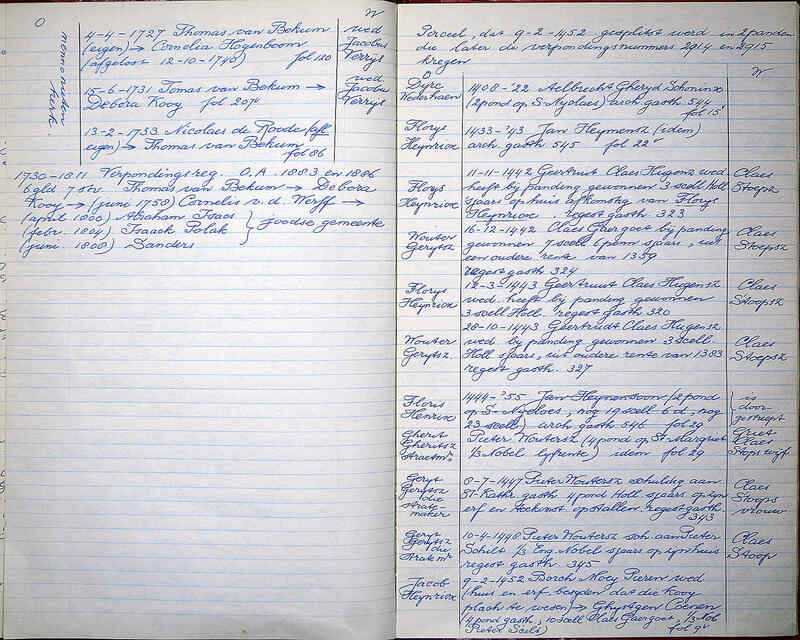 O
W
mennonieten
kerk.
4-4-1727 Thomas van Bekum
(eigen) → Cornelia Hogenboom
(afgelost 12-10-1740) fol 120
wed
Jacobus
Verrys
15-6-1731 Tomas van Bekum →
Debora Kooy fol 207v
wed.
Jacobus
Verrys
13-2-1733 Nicolaes de Roode (afl
eigen) → Thomas van Bekum
fol 86
1730-1811 Verpondingsreg. O.A. 1883 en 1886
6 gld 7 str. Thomas van Bekum → Debora
Kooy → (juni 1758) Cornelis v. d. Werff →
(april 1800) Abraham Isaac
(febr. 1804) Isaack Polak
(juni 1808) Sanders
Joodse gemeente
Perceel, dat 9-2-1452 gesplitst werd in 2 panden
die later de verpondingsnummers 2914 en 2915
kregen
O
W
Dyrc
Nederhaen
1408-'22 Aelbrecht Gheryd Schoninx
(2 pond op S-Nyclaes) arch gasth 544
fol 15
Florys
Heynricx
1433-'43 Jan Heymensz (idem)
arch. gasth 545 fol 22v
Florys
Heynricx
11-11-1442 Geertruut Claes Hugenz wed
heeft by panding gewonnen 3 scell Holl
sjaars op huis afkomstig van Florys
Heynricx. regest gasth. 323
Claes
Stoepsz
Wouter
Gerytsz
16-12-1442 Claes Goergoet by panding
gewonnen 7 scell 1 penn sjaars, uit
een oudere rente van 1359
regest gasth 324
Claes
Stoepsz
Florys
Heynricx
12-3-1443 Geertruut Claes Hugensz
wed heeft by panding gewonnen
3 scell Holl. regest gasth 320
Claes
Stoepsz
Wouter
Gerytsz.
28-10-1443 Geertrudt Claes Hugensz
wed by panding gewonnen 3 scell.
Holl sjaars, uit oudere rente van 1383
regest gasth. 327
Claes
Stoepsz
Floris
Henricx
1444-'55 Jan Heynensoon (2 pond
op S-Nyclaes, nog 19 scell 6 d, nog
23 scell) arch gasth 546 fol 29
is
door-
gestreept
Gherit
Gheritsz
Straetmr.
Pieter Woutersz (4 pond op St. Margriet
1/3 Nobel lyfrente) idem fol 29
Griet
Claes
Stopswijf
Geryt
Gerytsz
die
Strate-
maker
8-7-1447 Pieter Woutersz schuldig aan
St-Kathr. gasth 4 pond Holl sjaars op zyn
erf en toekomst. opstallen. regest gasth.
343
Claes
Stoeps
vrouw
Geryt
Gerytsz
die
Stratemr
10-4-1448 Pieter Woutersz sch. aan Pieter
Schilt 1/3 Eng. Nobel sjaars op zyn huis
regest gasth. 345
Claes
Stoop
Jacob
Heynricx
9-2-1452 Borch Moey Pieren wed
(huis en erf. besyden dat die kooy
plach te wesen) → Ghystgen Coenen
(4 pond gasth, 10 scell Claes Goergoet, 1/3 Nob
Pieter Scilt) fol 9v